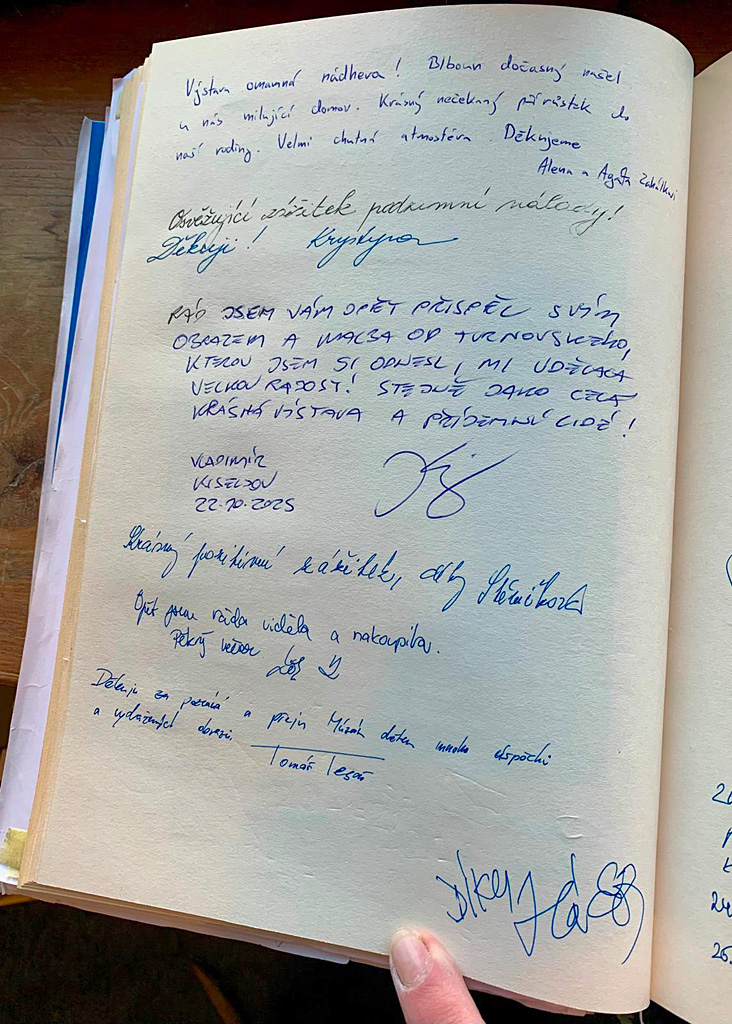 Výstava omamná nádhera! Blboun dočasný našel
u nás milující domov. Krásný nečekaný přírůstek do
naší rodiny. Velmi chutná atmosféra. Děkujeme
Alena a Agáta
Osvěžující zážitek podzimní nálady!
Děkuji! Krystyna
RÁD JSEM VÁM OPĚT PŘISPĚL SVÝM
OBRAZEM A MALBA OD TURNOVSKÉHO,
KTEROU JSEM SI ODNESL, MI UDĚLALA
VELKOU RADOST! STEJNĚ JAKO CELÁ
KRÁSNÁ VÝSTAVA A PŘÍJEMNÍ LIDÉ!
VLADIMÍR
KISELJOV
22.10.2025
Krásný pozitivní zážitek, díky
Opět jsme ráda viděla a nakoupila.
Pěkný večer
Děkuji za pozvání a přeju mnoho úspěchů
a vydražených obrazů.
Tomáš
Díky
24